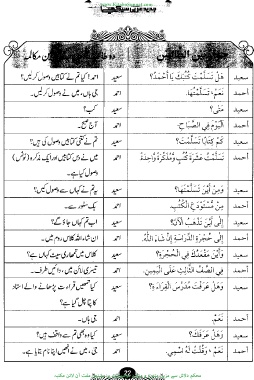 سعيد هَلْ تَسَلَّمْتَ كُتُبَكَ يَا أَحْمَدُ؟ سعيد احمد! کیا تم نے کتابیں وصول کر لیں؟
أحمد نَعَمْ، تَسَلَّمْتُهَا. احمد جی ہاں، میں نے وصول کر لیں۔
سعيد مَتَى؟ سعيد کب؟
أحمد اَلْيَوْمَ فِي الصَّبَاحِ. احمد آج صبح۔
سعيد كَمْ كِتَابًا تَسَلَّمْتَ؟ سعيد تم نے کتنی کتابیں وصول کی ہیں؟
أحمد تَسَلَّمْتُ عَشَرَةَ كُتُبٍ وَمُذَكِّرَةً وَاحِدَةً احمد میں نے دس کتابیں اور ایک مذکرہ (نوٹس)
وصول کیا ہے۔
سعيد وَمِنْ أَيْنَ تَسَلَّمْتَهَا؟ سعيد یہ تم نے کہاں سے وصول کیں؟
أحمد مِنْ مُسْتَوْدَعِ الْكُتُبِ. احمد بک سٹور سے۔
سعيد إِلَى أَيْنَ تَذْهَبُ الْآنَ؟ سعيد اب تم کہاں جاؤ گے؟
أحمد إِلَى حُجْرَةِ الدِّرَاسَةِ إِنْ شَاءَ اللهُ. احمد ان شاء اللہ کلاس روم میں۔
سعيد وَأَيْنَ مَقْعَدُكَ فِي الْحُجْرَةِ؟ سعيد کلاس میں تمھاری سیٹ کہاں ہے؟
أحمد فِي الصَّفِّ الثَّالِثِ عَلَى الْيَمِينِ. احمد تیسری لائن میں، دائیں طرف۔
سعيد وَهَلْ عَرَفْتَ مُدَرِّسَ الْقِرَاءَةِ؟ سعيد کیا تمھیں قراءت پڑھانے والے استاد
کا پتا چل گیا ہے؟
أحمد نَعَمْ. احمد جی ہاں۔
سعيد وَهَلْ عَرَفَكَ؟ سعيد کیا وہ بھی تم سے واقف ہیں؟
أحمد نَعَمْ، وَقُلْتُ لَهُ اسْمِي. احمد جی، میں نے انھیں اپنا نام بتایا ہے۔
22